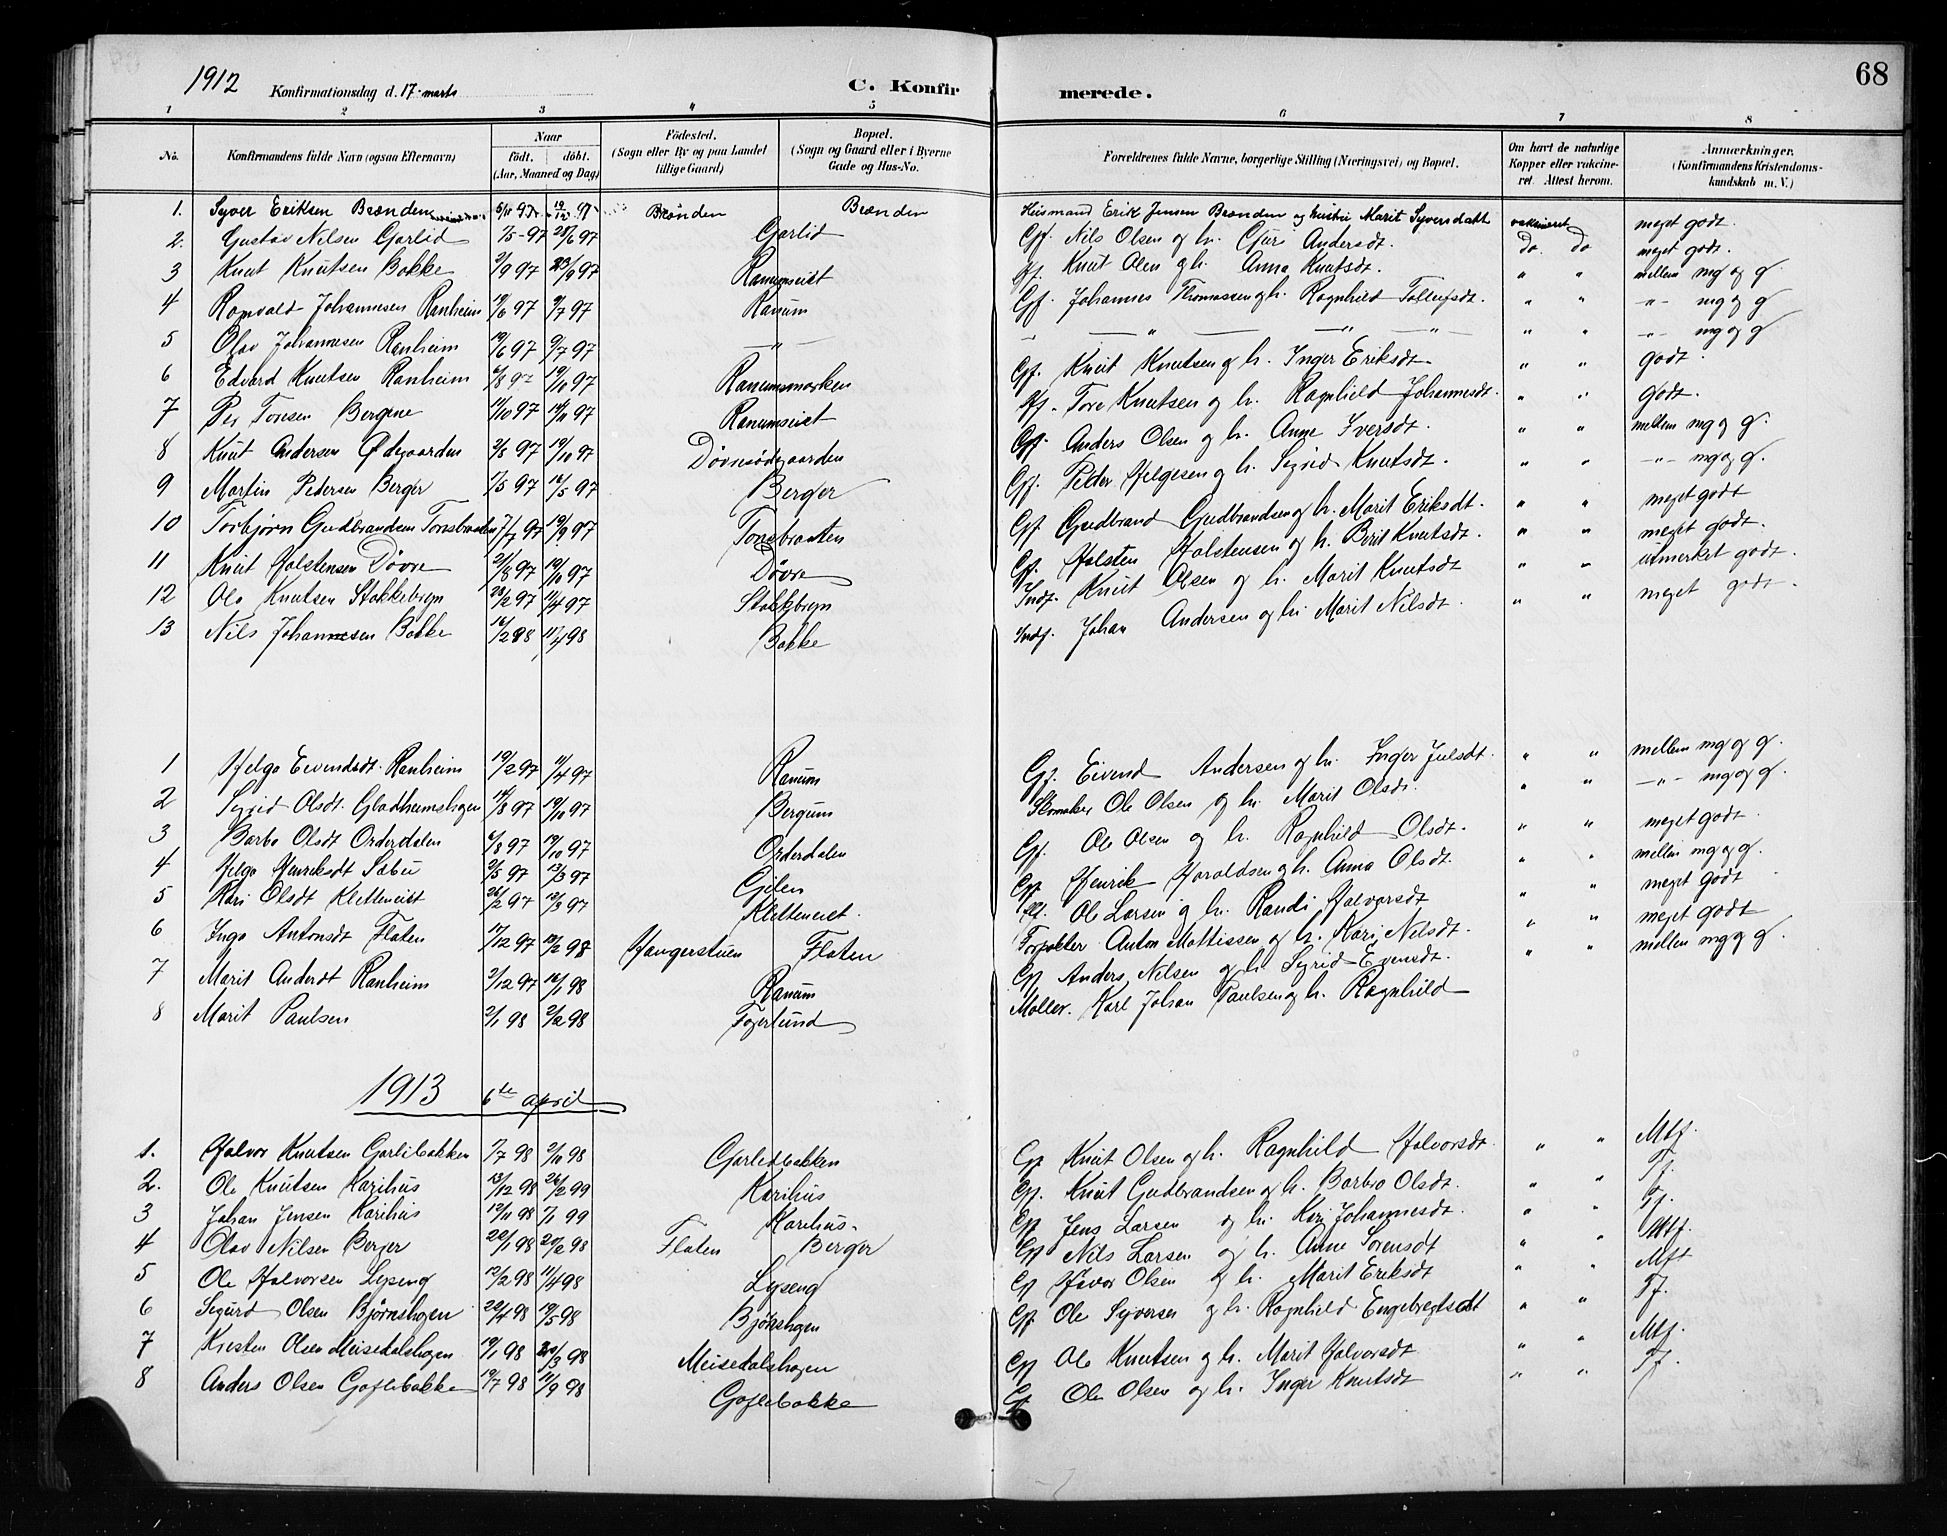 1912 Konfirmationsdag d. 17 marts C. Konfir merede. 68
1 2 3 4 5 6 7 8
No. Konfirmandens fulde Navn (ogsaa Efternavn) Naar födt. döbt. (Aar, Maaned og Dag) Födested. (Sogn eller By og paa Landet tillige Gaard) Bopæl. (Sogn og Gaard eller i Byerne Gade og Hus-No. Forældrenes fulde Navne, borgerlige Stilling (Næringsvei) og Bopæl. Om havt de naturlige Kopper eller vakcineret. Attest herom. Anmærkninger. (Konfirmandens Kristendomskundskab m. V.)
1. Syver Eriksen Brænden 5/11 97 19/12 97 Brænden Brænden Husmand Erik Jensen Brænden og hustru Marit Syversdatt vakcineret meget godt
2. Gustav Nilsen Garlid 7/5-97 28/6 97 Garlid Gf. Nils Olsen og h. Guri Andersdt. do do meget godt.
3 Knut Knutsen Bakke 2/9 97 23/9 97 Ranumseiet Gf. Knut Olsen og h. Anna Knutsdt. " " mellem mg og g.
4 Ragnvald Johannesen Ranheim 19/6 97 9/7 97 Ranum Gf. Johannes Thomassen og h. Ragnhild Tollefsdt. " " -"- mg og g
5 Olav Johannesen Ranheim 19/6 97 9/7 97 — " — — " — " — " " -"- mg og g
6 Edvard Knutsen Ranheim 6/8 97 19/10 97 Ranumsmarken Gf. Knut Knutsen og h. Inger Eriksdt. " " godt.
7 Per Toresen Bergene 11/10 97 14/11 97 Ranumseiet Gf. Tore Knutsen og h. Ragnhild Johannesdt. " " godt.
8 Knut Andersen Ødegaarden 2/8 97 19/10 97 Døvreødegaarden Gf. Anders Olsen og h. Anne Iversdt. " " mellem mg og g.
9 Martin Pedersen Berger 7/5 97 16/5 97 Berger Gf. Peder Helgesen og h. Sigrid Knutsdt. " " -"- mg og g.
10 Torbjørn Gudbrandsen Tonsbraaten 7/7 97 19/9 97 Tonsbraaten Gf Gudbrand Gudbrandsen og h. Marit Eriksdt. " " meget godt
11 Knut Halstensen Døvre 21/8 97 19/10 97 Døvre Gf. Halsten Halstensen og h. Berit Knutsdt. " " meget godt.
12 Ole Knutsen Stakkebryn 28/2 97 11/4 97 Stakkbryn Indf. Knut Olsen og h. Marit Knutsdt " " utmerket godt.
13 Nils Johannesen Bakke 16/2 98 11/4 98 Bakke Indf. Johan Andersen og h. Marit Nilsdt. " " meget godt.
1 Helga Eivendsdt. Ranheim 19/2 97 11/4 97 Ranum Gf. Eivend Andersen og h. Inger Julsdt. " " mellem mg og g.
2 Sigrid Olsdt. Gladheimshagen 14/8 97 19/10 97 Bergum Skomaker Ole Olsen og h. Marit Olsdt. " " -"- mg og g.
3 Barbo Olsdt Orderdalen 6/8 97 19/10 97 Orderdalen Gf. Ole Olsen og h. Ragnhild Olsdt. " " meget godt.
4 Helga Henriksdt Sæbu 2/5 97 13/3 97 Gilen Gf Henrik Haraldsen og h. Anna Olsdt. " " mellem mg og g.
5 Kari Olsdt Kletteneiet 26/2 97 12/3 97 Kletteneiet. Gf. Ole Larsen og h. Randi Halvorsdt " " meget godt
6 Inga Antonsdt Flaten 17/12 97 10/2 98 Haugerstuen Flaten Forpakter Anton Mattissen og h. Kari Nilsdt. " " meget godt
7 Marit Andersdt Ranheim 2/12 97 16/1 98 Ranum Gf Anders Nilsen og h. Sigrid Evensdt. " " mellem mg og g.
8 Marit Paulsen 2/1 98 2/2 98 Fagerlund Møller. Karl Johan Paulsen og h. Ragnhild
1913 6te april
1. Halvor Knutsen Garlibakken 1/7 98 2/11 98 Garlidbakken Gf Knut Olsen og h. Ragnhild Halvorsdt. " " Mtf.
2. Ole Knutsen Karihus 13/12 98 26/2 99 Karihus Gf. Knut Gudbrandsen og h. Barbro Olsdt. " " Tf.
3 Johan Jensen Karihus 12/11 98 7/1 99 Karihus. Gf Jens Larsen og h. Kari Johannesdt. " " Tf.
4 Olav Nilsen Berger 22/1 98 20/2 98 Flaten Berger Gf Nils Larsen og h. Anne Sørensdt " " Mtf.
5 Ole Halvorsen Lyseng 12/2 98 11/4 98 Lyseng Gf Havor Olsen og h. Marit Eriksdt " " Mtf
6 Sigurd Olsen Bjørnshagen 22/4 98 19/5 98 Bjørnshagen Gf. Ole Syversen og h. Ragnhild Engebregtsdt " " Tf.
7 Kristen Olsen Meisedalshagen 19/1 98 20/3 98 Meisedalshagen Gf Ole Knutsen og h. Marit Halvorsdt " " Mtf.
8 Anders Olsen Goflebakke 19/7 98 11/9 98 Goflebakke Gf Ole Olsen og h. Inger Knutsdt " " Tf.